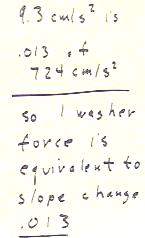 9.3 cm/s² is
.013 of
724 cm/s²
so 1 washer
force is
equivalent to
slope change
.013